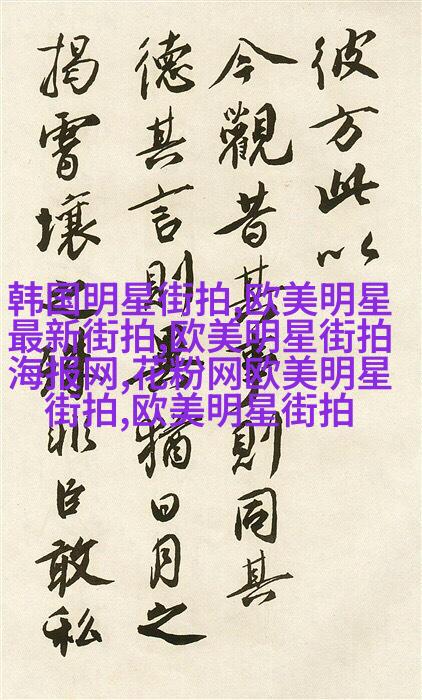 彼方此以
今觀昔其事則同其
德其言則異猶日月之
揭霄壤非臣敢私
韩国明星街拍,欧美明星
最新街拍,欧美明星街拍
海报网,花粉网欧美明星
街拍,欧美明星街拍